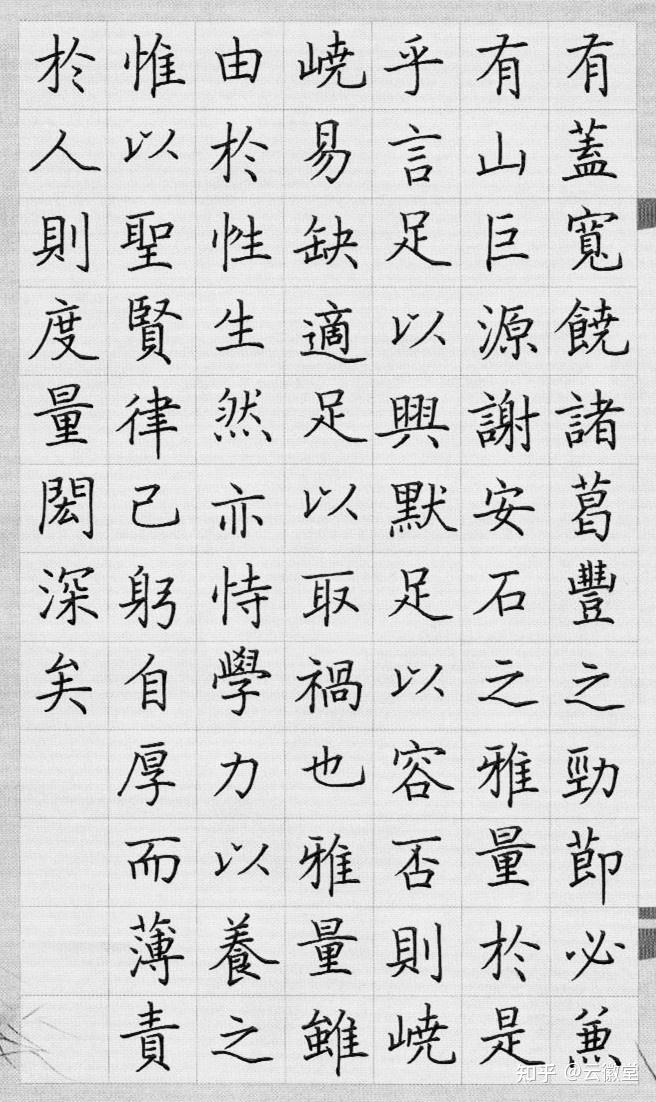 有蓋寬饒諸葛豐之勁節必兼
有山巨源謝安石之雅量於是
乎言足以興默足以容否則嶢
嶢易缺適足以取禍也雅量雖
由於性生然亦恃學力以養之
惟以聖賢律己躬自厚而薄責
於人則度量閎深矣
知乎 @云徽堂